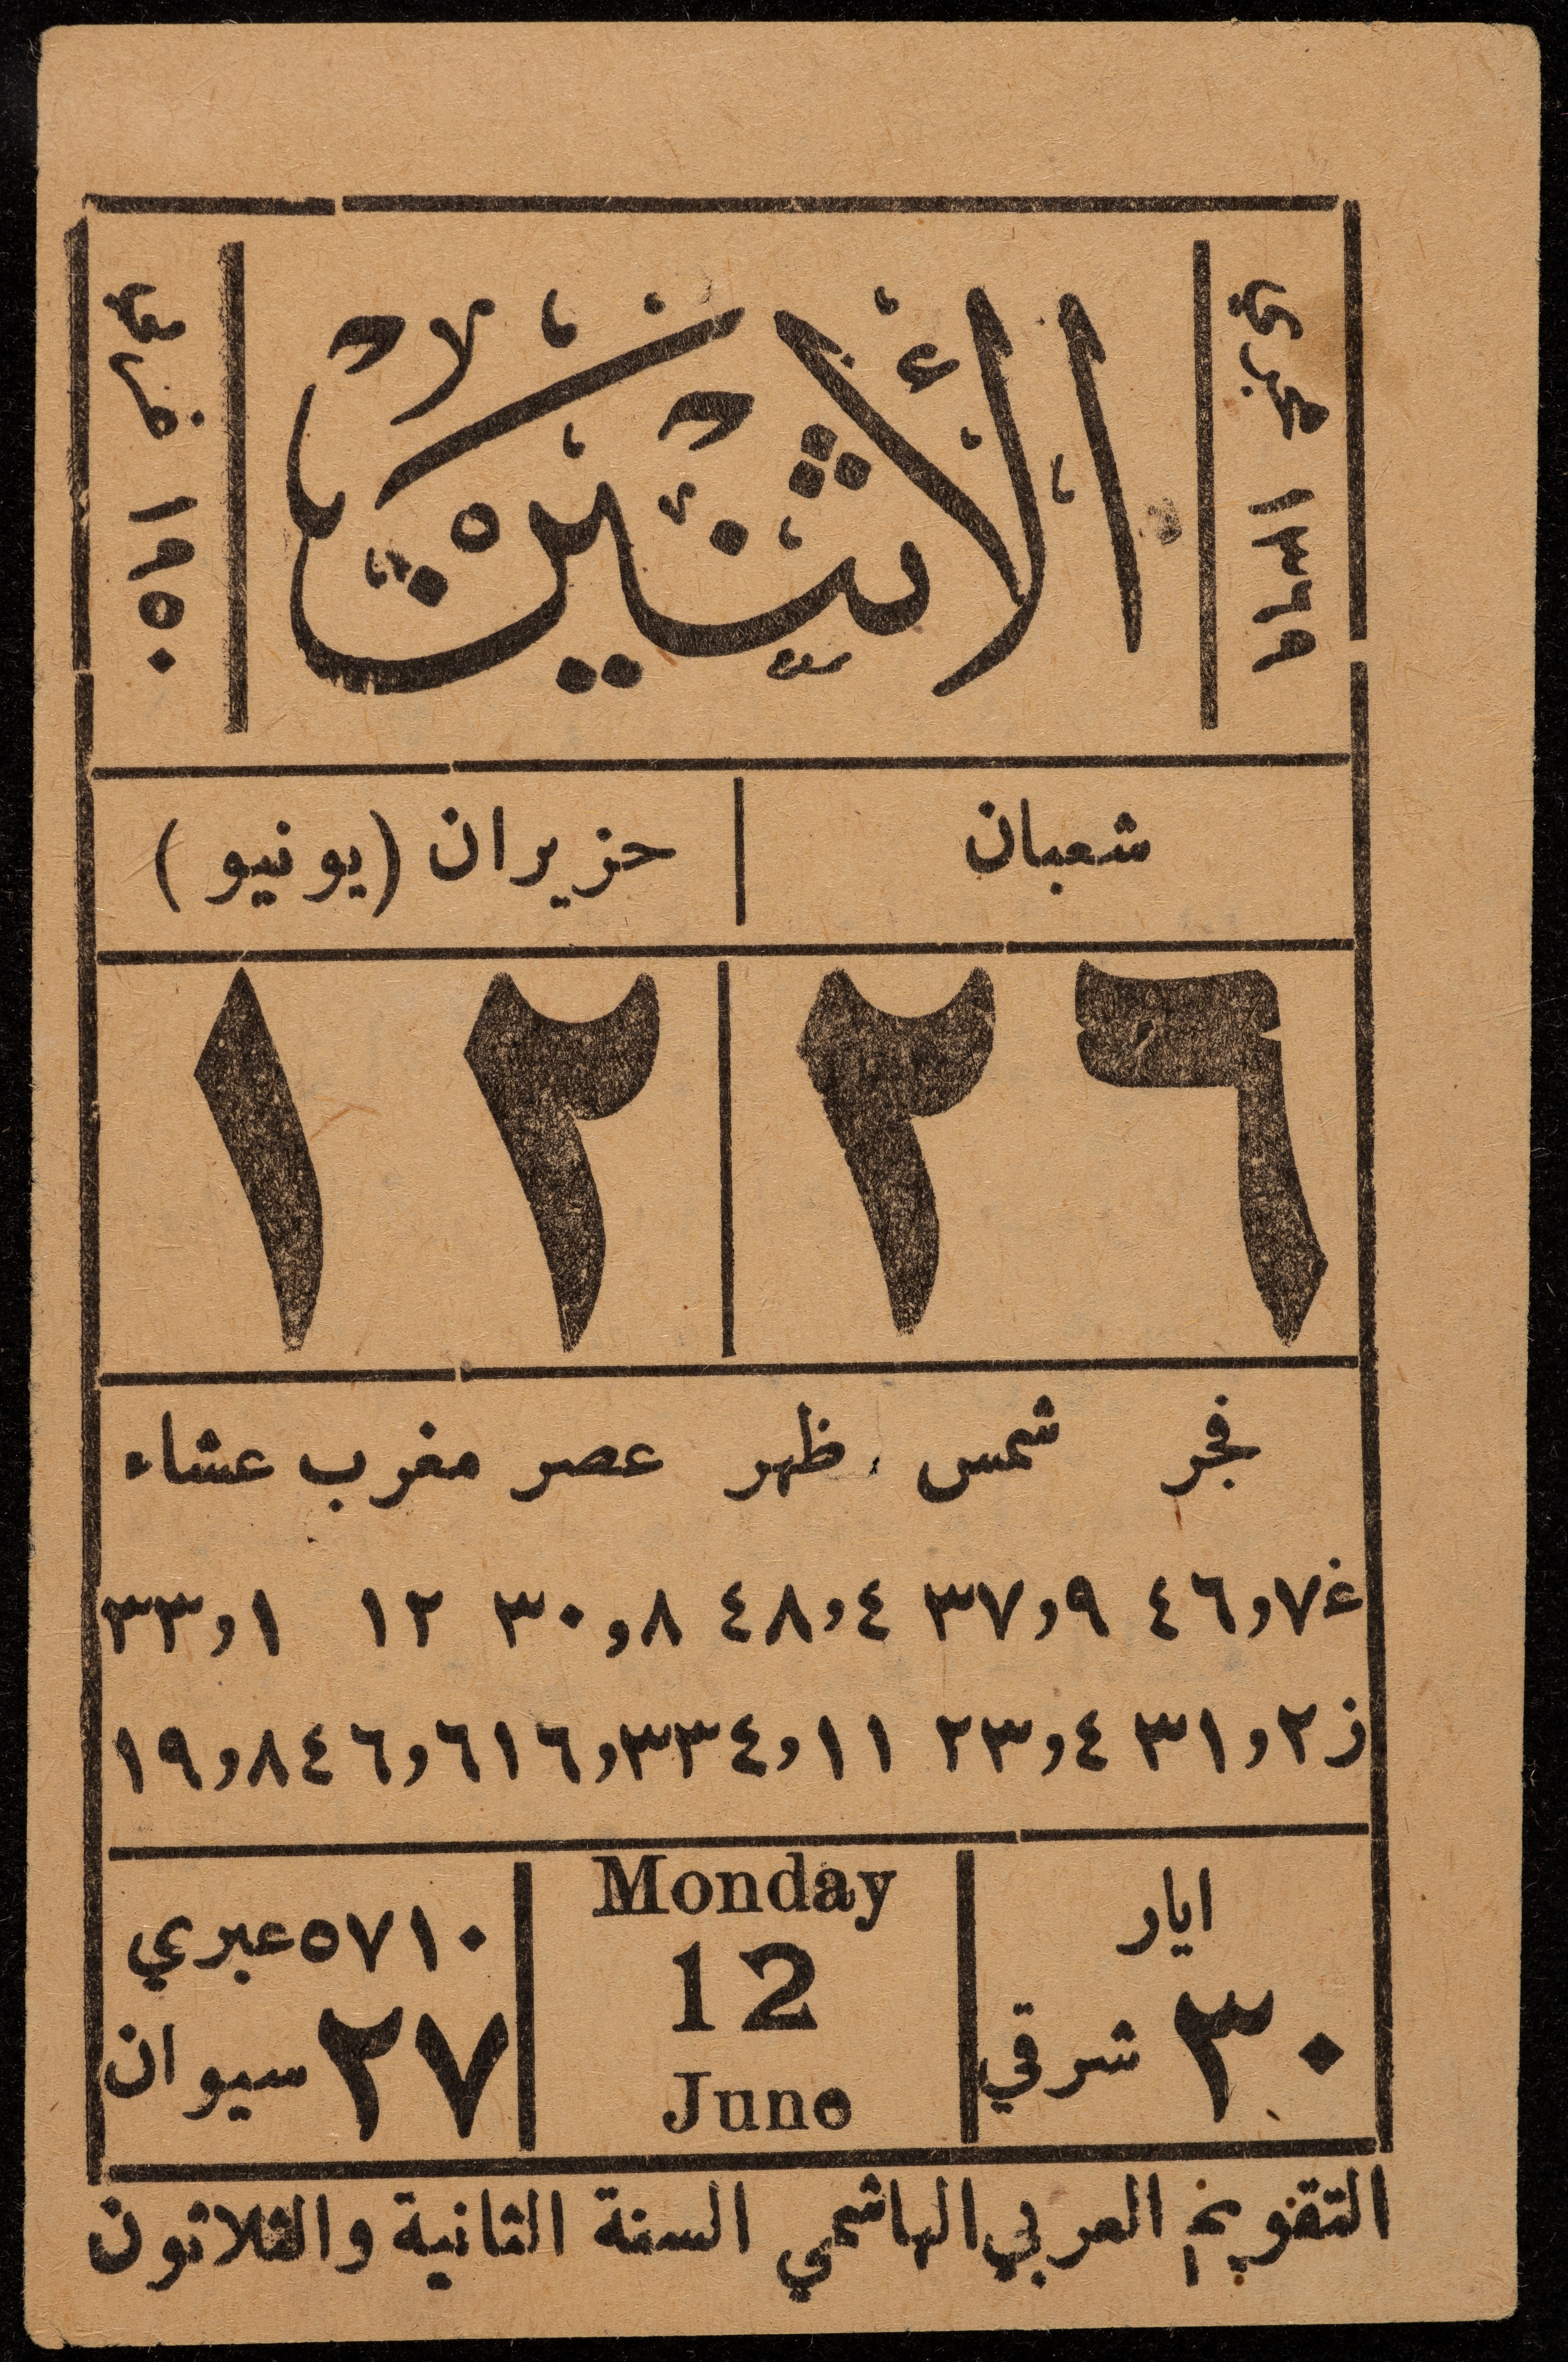 ١٣٦٩ هجري
الأثنين
١٩٥٠ غربي
شعبان
حزيران (يونيو)
٢٦
١٢
فجر شمس ظهر عصر مغرب عشاء
غ ٧,٤٦ ٩,٣٧ ٤,٤٨ ٨,٣٠ ١٢ ١,٣٣
ز ٢,٣١ ٤,٢٣ ١١,٣٤ ٣,١٦ ٦,٤٦ ٨,١٩
ايار
٣٠ شرقي
Monday
12
June
٥٧١٠ عبري
٢٧ سيوان
التقويم العربي الهاشمي السنة الثانية والثلاثون